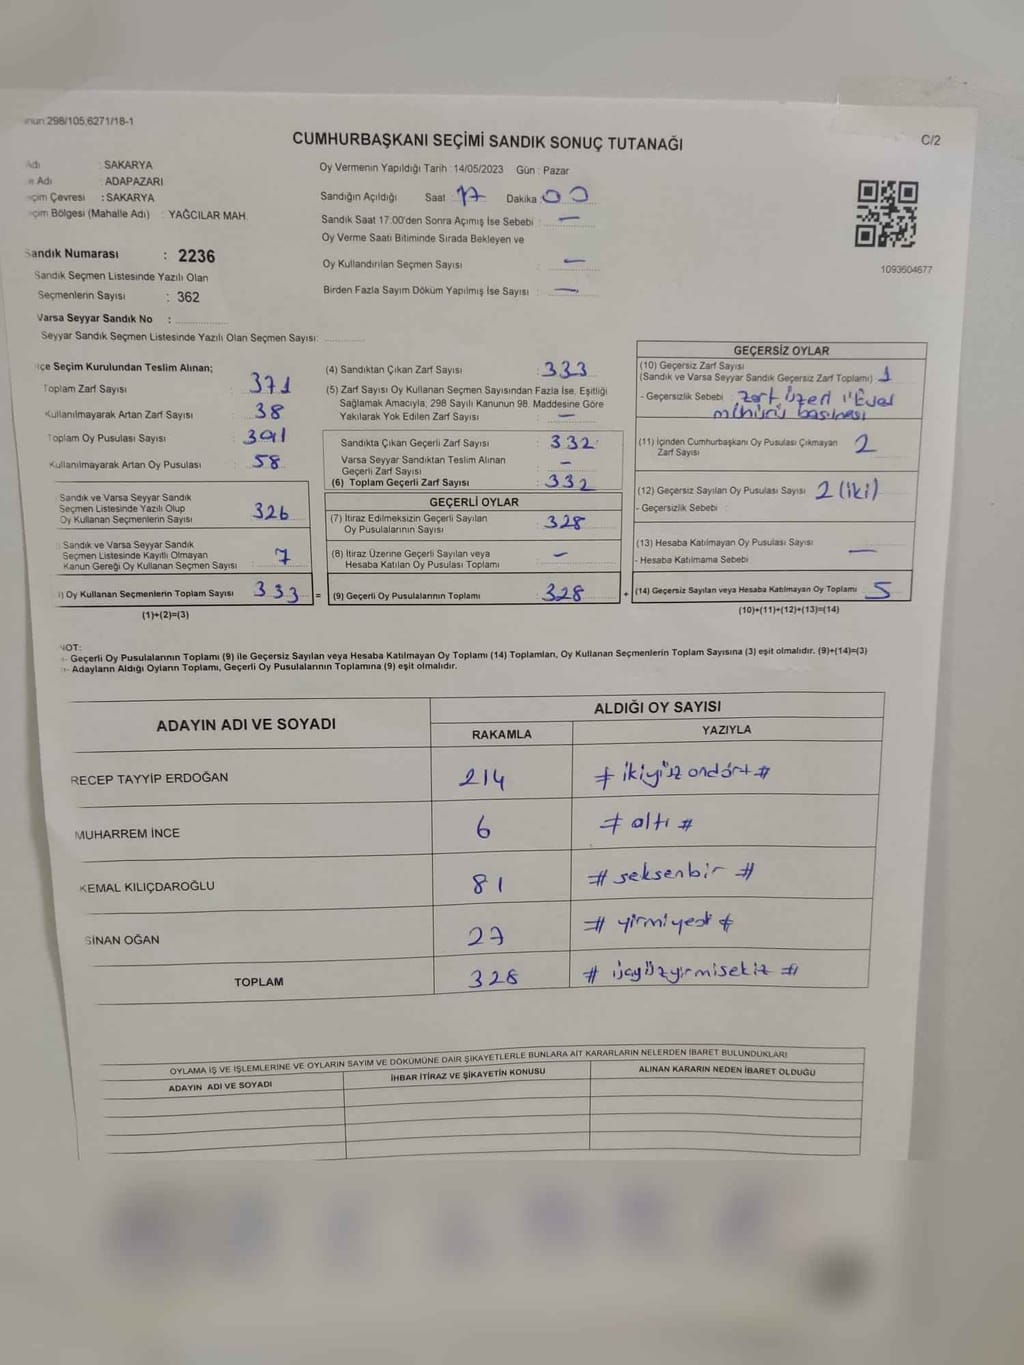 298/105,6271/18-1
CUMHURBAŞKANI SEÇİMİ SANDIK SONUÇ TUTANAĞI
C/2
Adı : SAKARYA
Adı : ADAPAZARI
Çevresi : SAKARYA
Bölgesi (Mahalle Adı) : YAĞCILAR MAH.
Sandık Numarası : 2236
Sandık Seçmen Listesinde Yazılı Olan
Seçmenlerin Sayısı : 362
Varsa Seyyar Sandık No :
Seyyar Sandık Seçmen Listesinde Yazılı Olan Seçmen Sayısı:
Oy Vermenin Yapıldığı Tarih : 14/05/2023 Gün : Pazar
Sandığın Açıldığı Saat : 17 Dakika : 00
Sandık Saat 17:00'den Sonra Açımış İse Sebebi : —
Oy Verme Saati Bitiminde Sırada Bekleyen ve
Oy Kullandırılan Seçmen Sayısı : —
Birden Fazla Sayım Döküm Yapılmış İse Sayısı : —
1093604677
İlçe Seçim Kurulundan Teslim Alınan;
Toplam Zarf Sayısı : 371
Kullanılmayarak Artan Zarf Sayısı : 38
Toplam Oy Pusulası Sayısı : 391
Kullanılmayarak Artan Oy Pusulası : 58
Sandık ve Varsa Seyyar Sandık
Seçmen Listesinde Yazılı Olup
Oy Kullanan Seçmenlerin Sayısı : 326
Sandık ve Varsa Seyyar Sandık
Seçmen Listesinde Kayıtlı Olmayan
Kanun Gereği Oy Kullanan Seçmen Sayısı : 7
Oy Kullanan Seçmenlerin Toplam Sayısı : 333 =
(1)+(2)=(3)
(4) Sandıktan Çıkan Zarf Sayısı : 333
(5) Zarf Sayısı Oy Kullanan Seçmen Sayısından Fazla İse, Eşitliği
Sağlamak Amacıyla, 298 Sayılı Kanunun 98. Maddesine Göre
Yakılarak Yok Edilen Zarf Sayısı : —
Sandıkta Çıkan Geçerli Zarf Sayısı : 332
Varsa Seyyar Sandıktan Teslim Alınan
Geçerli Zarf Sayısı : —
(6) Toplam Geçerli Zarf Sayısı : 332
GEÇERLİ OYLAR
(7) İtiraz Edilmeksizin Geçerli Sayılan
Oy Pusulalarının Sayısı : 328
(8) İtiraz Üzerine Geçerli Sayılan veya
Hesaba Katılan Oy Pusulası Toplamı : —
(9) Geçerli Oy Pusulalarının Toplamı : 328 +
GEÇERSİZ OYLAR
(10) Geçersiz Zarf Sayısı
(Sandık ve Varsa Seyyar Sandık Geçersiz Zarf Toplamı) : 1
- Geçersizlik Sebebi : zarf üzeri "Evet
mührü basılması
(11) İçinden Cumhurbaşkanı Oy Pusulası Çıkmayan
Zarf Sayısı 2
(12) Geçersiz Sayılan Oy Pusulası Sayısı : 2 (iki)
- Geçersizlik Sebebi :
(13) Hesaba Katılmayan Oy Pusulası Sayısı : —
- Hesaba Katılmama Sebebi
(14) Geçersiz Sayılan veya Hesaba Katılmayan Oy Toplamı : 5
(10)+(11)+(12)+(13)=(14)
NOT:
- Geçerli Oy Pusulalarının Toplamı (9) ile Geçersiz Sayılan veya Hesaba Katılmayan Oy Toplamı (14) Toplamları, Oy Kullanan Seçmenlerin Toplam Sayısına (3) eşit olmalıdır. (9)+(14)=(3)
- Adayların Aldığı Oyların Toplamı, Geçerli Oy Pusulalarının Toplamına (9) eşit olmalıdır.
ADAYIN ADI VE SOYADI
ALDIĞI OY SAYISI
RAKAMLA YAZIYLA
RECEP TAYYİP ERDOĞAN 214 # ikiyüz ondört #
MUHARREM İNCE 6 # altı #
KEMAL KILIÇDAROĞLU 81 # seksenbir #
SİNAN OĞAN 27 # yirmiyedi #
TOPLAM 328 # üçyüzyirmisekiz #
OYLAMA İŞ VE İŞLEMLERİNE VE OYLARIN SAYIM VE DÖKÜMÜNE DAİR ŞİKAYETLERLE BUNLARA AİT KARARLARIN NELERDEN İBARET BULUNDUKLARI
ADAYIN ADI VE SOYADI İHBAR İTİRAZ VE ŞİKAYETİN KONUSU ALINAN KARARIN NEDEN İBARET OLDUĞU